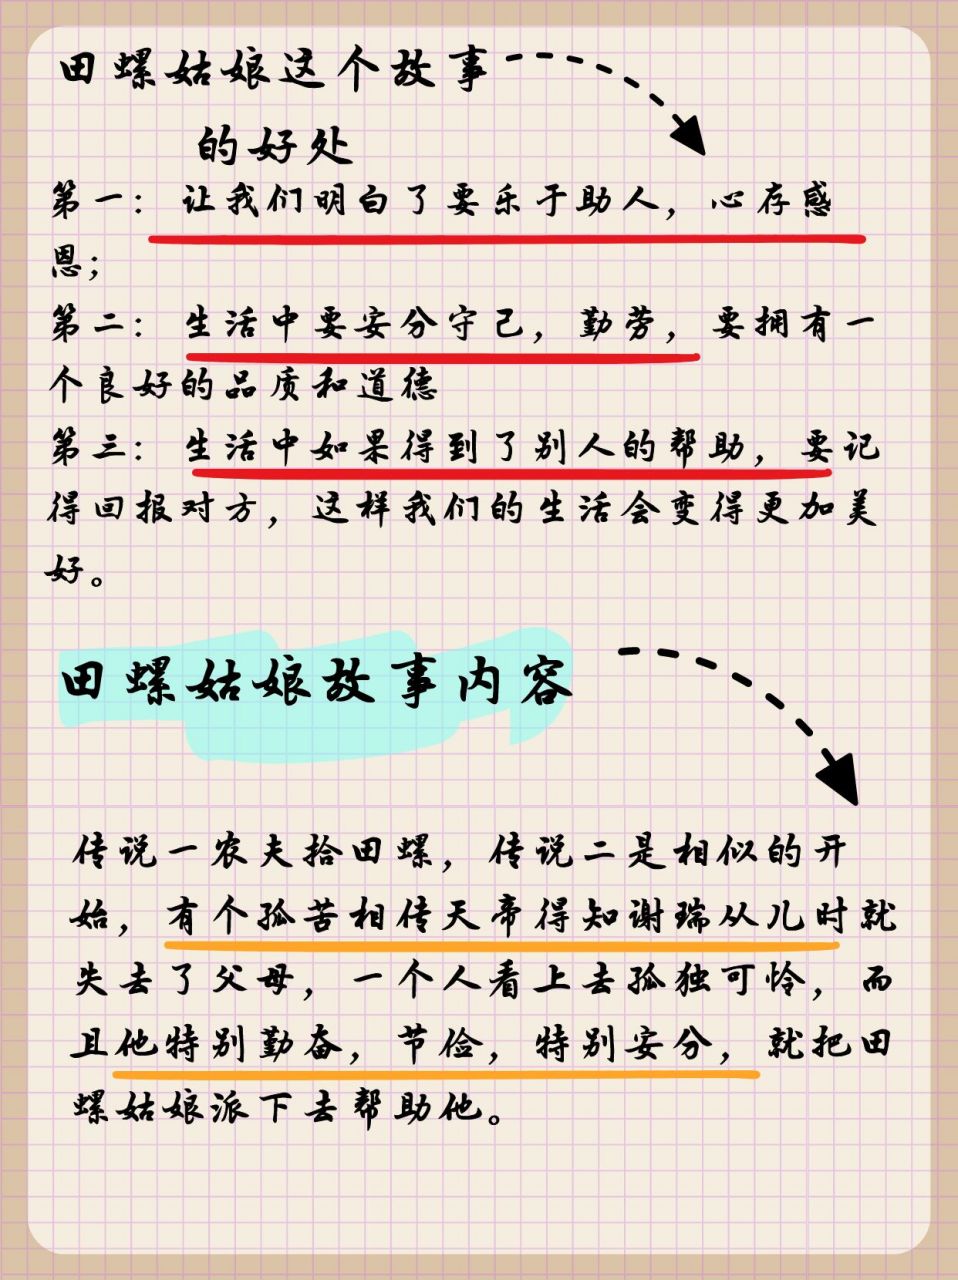 田螺姑娘这个故事
的好处
第一：让我们明白了要乐于助人，心存感
恩；
第二：生活中要安分守己，勤劳，要拥有一
个良好的品质和道德
第三：生活中如果得到了别人的帮助，要记
得回报对方，这样我们的生活会变得更加美
好。
田螺姑娘故事内容
传说一农夫拾田螺，传说二是相似的开
始，有个孤苦相传天帝得知谢瑞从儿时就
失去了父母，一个人看上去孤独可怜，而
且他特别勤奋，节俭，特别安分，就把田
螺姑娘派下去帮助他。